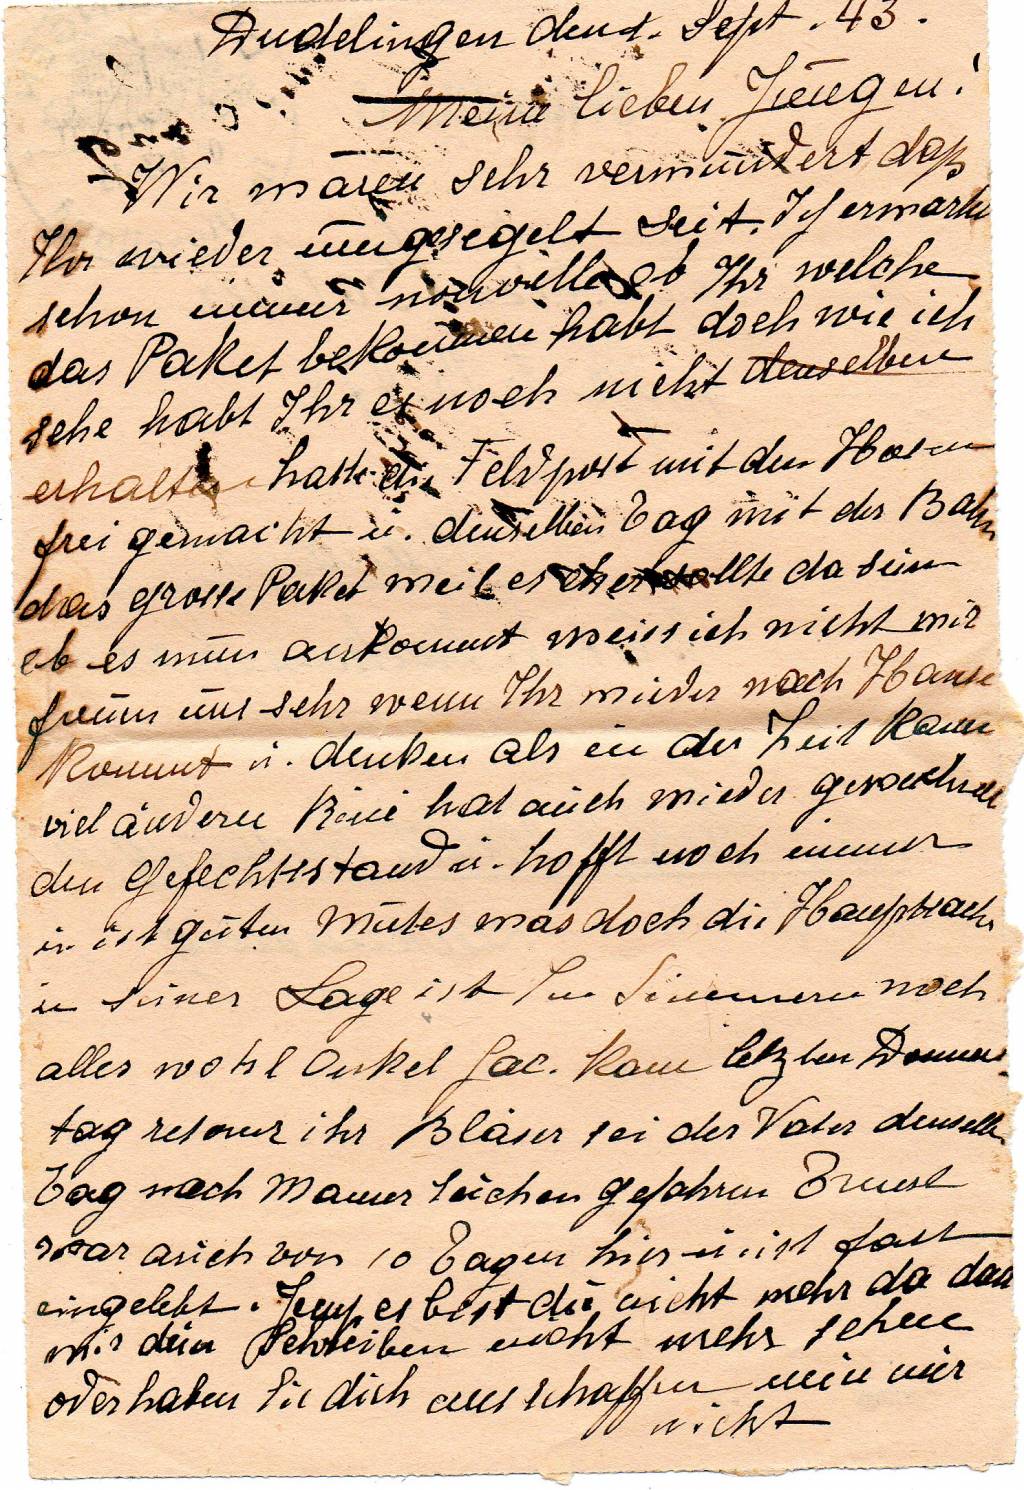 Dudelingen den 1. Sept. 43.
Meine lieben Jungen!
Wir waren sehr verwundert daß
Ihr wieder umgesegelt seit. Ich erwarte
schon immer ob Ihr welche
das Paket bekommen habt doch wie ich
sehe habt Ihr es noch nicht denselben
erhalten hatte die Feldpost mit den Hosen
frei gemacht u. denselben Tag mit der Bahn
das grosse Paket weil es eher sollte da sein
ob es nun ankommt weiss ich nicht wir
freuen uns sehr wenn Ihr wieder nach Hause
kommt u. denken als in der Zeit kann
viel ändern hat auch wieder gewechselt
den Gefechtsstand u. hofft noch immer
u. ist guten Mutes was doch die Hauptsache
in seiner Lage ist In noch
alles wohl Onkel Jac. kam letzten Donners
tag retour ihr Bläser sei der Vater denselben
Tag nach Mamer gefahren Ernest
war auch vor 10 Tagen hier u. ist fast
eingelebt. Jemp es bist du nicht mehr da dass
wir dein Schreiben nicht mehr sehen
oder haben Sie dich nur
nicht